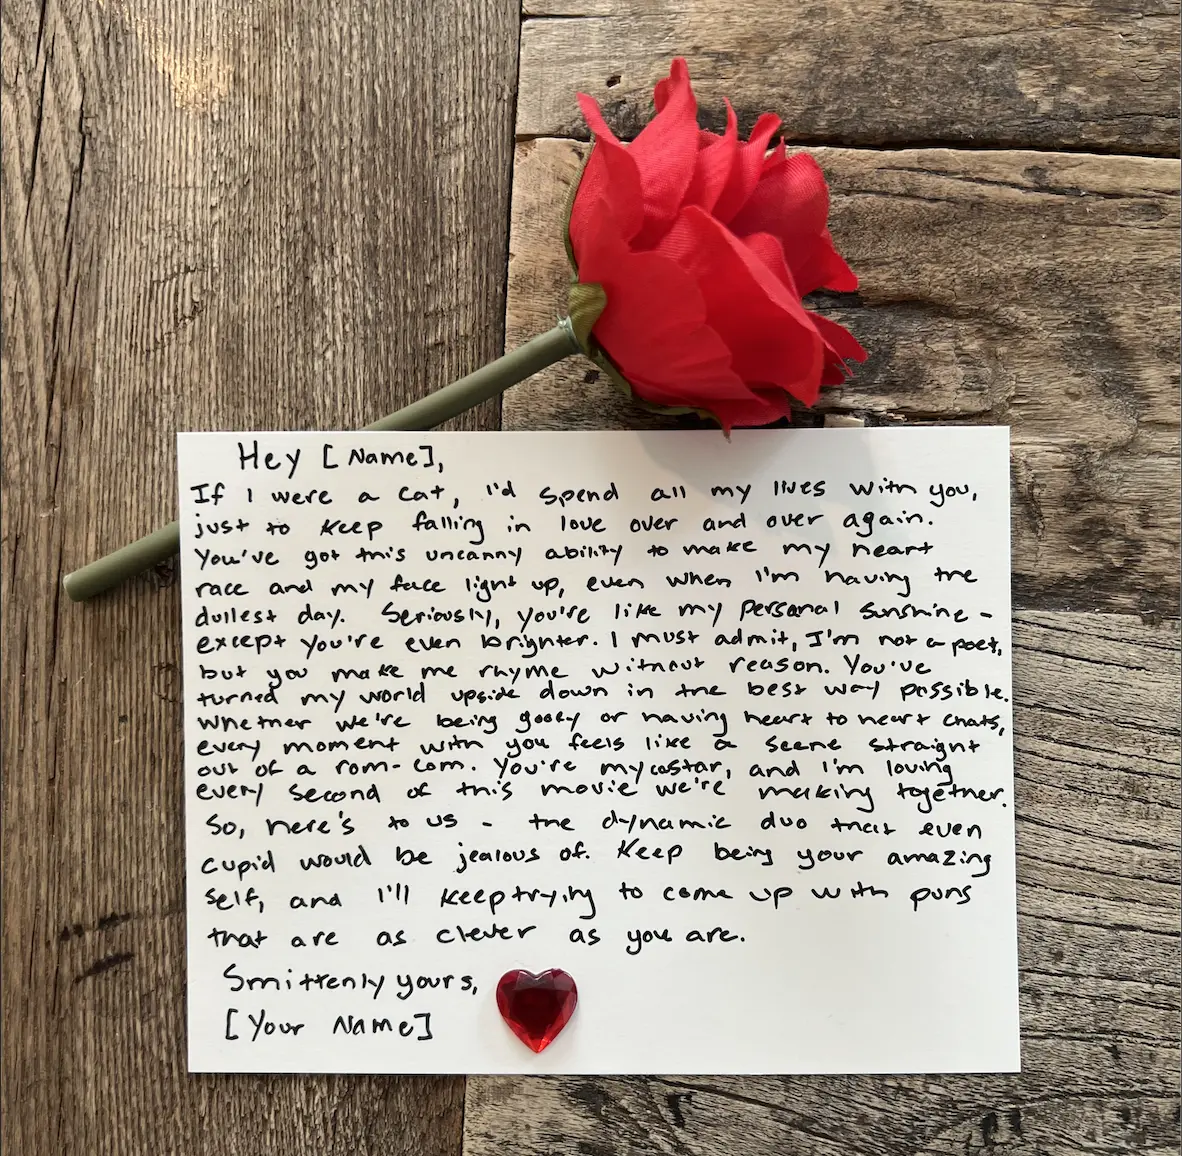 Hey [Name],
If I were a cat, I'd spend all my lives with you,
just to keep falling in love over and over again.
You've got this uncanny ability to make my heart
race and my face light up, even when I'm having the
dullest day. Seriously, you're like my personal sunshine -
except you're even brighter. I must admit, I'm not a poet,
but you make me rhyme without reason. You've
turned my world upside down in the best way possible.
Whether we're being goofy or having heart to heart chats,
every moment with you feels like a scene straight
out of a rom-com. You're my costar, and I'm loving
every second of this movie we're making together.
So, here's to us - the dynamic duo that even
cupid would be jealous of. Keep being your amazing
self, and I'll keep trying to come up with puns
that are as clever as you are.
Smittenly yours,
[Your Name]